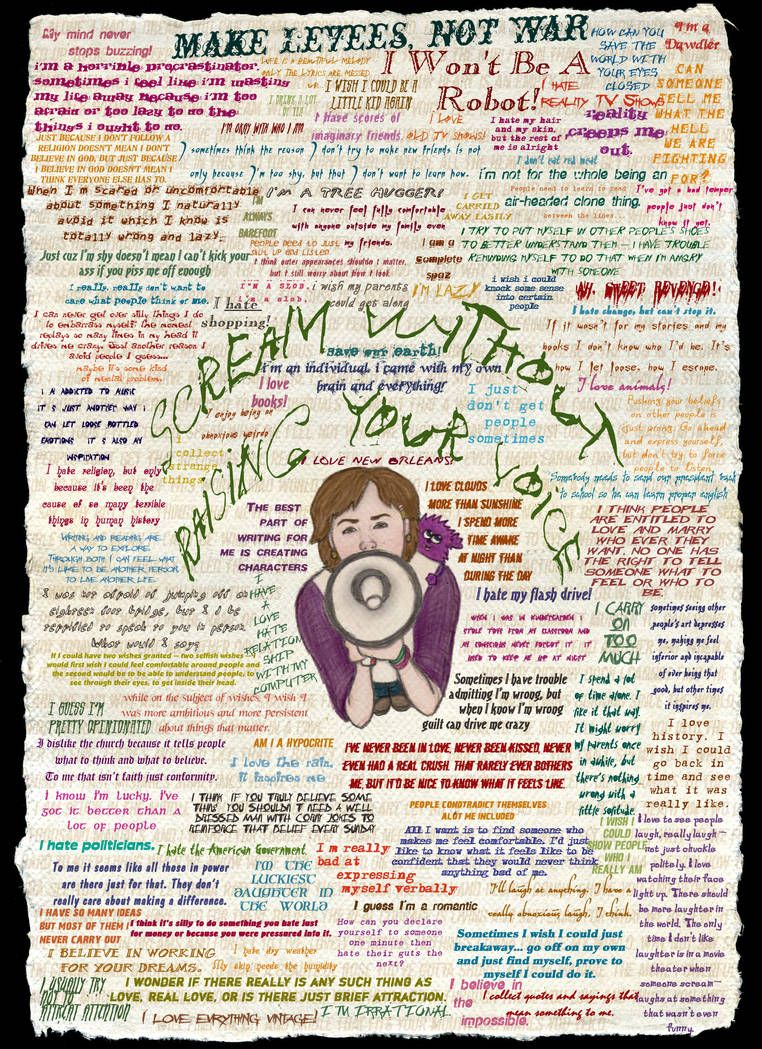 My mind never
stops buzzing!
MAKE LEVEES, NOT WAR
HOW CAN YOU
SAVE THE
WORLD WITH
YOUR EYES
CLOSED
I'm a
Dawdler
i'm a horrible procrastinator.
sometimes i feel like i'm wasting
my life away because i'm too
afraid or too lazy to do the
things i ought to do.
LIFE IS A BEAUTIFUL MELODY
ONLY THE LYRICS ARE MESSED
UP.
I Won't Be A
Robot!
I WISH I COULD BE A
LITTLE KID AGAIN
I DRINK A LOT
OF TEA
I HATE
REALITY TV SHOWS
reality
creeps me
out.
CAN
SOMEONE
TELL ME
WHAT THE
HELL
WE ARE
FIGHTING
FOR?
I'M OKAY WITH WHO I AM
I have scores of
imaginary friends.
I LOVE
OLD TV SHOWS!
I hate my hair
and my skin,
but the rest of
me is alright
JUST BECAUSE I DON'T FOLLOW A
RELIGION DOESN'T MEAN I DON'T
BELIEVE IN GOD, BUT JUST BECAUSE
I BELIEVE IN GOD DOESN'T MEAN I
THINK EVERYONE ELSE HAS TO.
I sometimes think the reason I don't try to make new friends is not
only because I'm too shy, but that I don't want to learn how.
I don't eat red meat
i'm not for the whole being an
air-headed clone thing.
When I'm scared or uncomfortable
about something I naturally
avoid it which I know is
totally wrong and lazy.
I'M A TREE HUGGER!
I'M
ALWAYS
BAREFOOT
I can never feel fully comfortable
with anyone outside my family even
my friends.
I GET
CARRIED
AWAY EASILY
People need to learn to read
between the lines...
I've got a bad temper
people just don't
know it yet.
PEOPLE NEED TO JUST
SHUT UP AND LISTEN
I think outer appearances shouldn't matter,
but I still worry about how I look.
I am a
complete
spaz
I TRY TO PUT MYSELF IN OTHER PEOPLE'S SHOES
TO BETTER UNDERSTAND THEM - I HAVE TROUBLE
REMINDING MYSELF TO DO THAT WHEN I'M ANGRY
WITH SOMEONE
Just cuz I'm shy doesn't mean I can't kick your
ass if you piss me off enough
I really, really don't want to
care what people think of me.
I hate
shopping!
I'M A SLOB.
i'm a slob.
i wish my parents
could get along
I'M LAZY
i wish i could
knock some sense
into certain
people
AH, SWEET REVENGE!!
I hate change, but can't stop it.
I can never get over silly things I do
to embarrass myself. The moment
replays so many times in my head it
drives me crazy. Just another reason I
avoid people I guess...
maybe it's some kind
of mental problem.
If it wasn't for my stories and my
books I don't know who I'd be. It's
how I let loose, how I escape.
I love animals!
SCREAM WITHOUT
RAISING YOUR VOICE
save our earth!
i'm an individual i came with my own
brain and everything!
I love
books!
I enjoy being an
obnoxious weirdo
i
collect
strange
things
I just
don't get
people
sometimes
I'M ADDICTED TO MUSIC
IT'S JUST ANOTHER WAY I
CAN LET LOOSE BOTTLED
EMOTIONS IT'S ALSO MY
INSPIRATION
Pushing your beliefs
on other people is
just wrong. Go ahead
and express yourself,
but don't try to force
people to listen.
I LOVE NEW ORLEANS!
I hate religion, but only
because it's been the
cause of so many terrible
things in human history
Somebody needs to send our president back
to school so he can learn proper english
THE BEST
PART OF
WRITING FOR
ME IS CREATING
CHARACTERS
I LOVE CLOUDS
MORE THAN SUNSHINE
I SPEND MORE
TIME AWAKE
AT NIGHT THAN
DURING THE DAY
I THINK PEOPLE
ARE ENTITLED TO
LOVE AND MARRY
WHO EVER THEY
WANT. NO ONE HAS
THE RIGHT TO TELL
SOMEONE WHAT TO
FEEL OR WHO TO
BE.
WRITING AND READING ARE
A WAY TO EXPLORE.
THROUGH BOTH I CAN FEEL WHAT
IT'S LIKE TO BE ANOTHER PERSON,
TO LIVE ANOTHER LIFE.
I was not afraid of jumping off an
eighteen foot bridge, but I'd be
terrified to speak to you in person.
What would I say?
I
HAVE
A
LOVE
HATE
RELATION
SHIP
WITH MY
COMPUTER
I hate my flash drive!
WHEN I WAS IN KINDERGARTEN I
STOLE TOYS FROM MY CLASSROOM AND
MY CONSCIENCE NEVER FORGOT IT. IT
USED TO KEEP ME UP AT NIGHT
I CARRY
ON
TOO
MUCH
sometimes seeing other
people's art depresses
me, making me feel
inferior and incapable
of ever being that
good, but other times
it inspires me.
If I could have two wishes granted - two selfish wishes - I
would first wish I could feel comfortable around people and
the second would be to be able to understand people, to
see through their eyes, to get inside their head.
Sometimes I have trouble
admitting I'm wrong, but
when I know I'm wrong
guilt can drive me crazy
I spend a lot
of time alone. I
like it that way.
It might worry
my parents once
in awhile, but
there's nothing
wrong with a
little solitude.
while on the subject of wishes, I wish I
was more ambitious and more persistent
about things that matter.
I GUESS I'M
PRETTY OPINIONATED
I love
history. I
wish I could
go back in
time and see
what it was
really like.
I dislike the church because it tells people
what to think and what to believe.
To me that isn't faith just conformity.
AM I A HYPOCRITE
I love the rain,
it inspires me
I'VE NEVER BEEN IN LOVE, NEVER BEEN KISSED, NEVER
EVEN HAD A REAL CRUSH, THAT RARELY EVER BOTHERS
ME, BUT IT'D BE NICE TO KNOW WHAT IT FEELS LIKE.
I know I'm lucky. I've
got it better than a
lot of people
I THINK IF YOU TRULY BELIEVE SOME
THING YOU SHOULDN'T NEED A WELL
DRESSED MAN WITH CORNY JOKES TO
REINFORCE THAT BELIEF EVERY SUNDAY
PEOPLE CONDTRADICT THEMSELVES
ALOT ME INCLUDED
I WISH I
COULD
SHOW PEOPLE
WHO I
REALLY AM
I love to see people
laugh, really laugh -
not just chuckle
politely. I love
watching their face
light up. There should
be more laughter in
the world. The only
time I don't like
laughter is in a movie
theater when
someone scream-
laughs at something
that wasn't even
funny.
I hate politicians.
To me it seems like all those in power
are there just for that. They don't
really care about making a difference.
I hate the American Government.
I'M THE
LUCKIEST
DAUGHTER IN
THE WORLD
I'm really
bad at
expressing
myself verbally
All I want is to find someone who
makes me feel comfortable. I'd just
like to know what it feels like to be
confident that they would never think
anything bad of me.
I'll laugh at anything. I have a
really obnoxious laugh, I think.
I HAVE SO MANY IDEAS
BUT MOST OF THEM I
NEVER CARRY OUT
I think it's silly to do something you hate just
for money or because you were pressured into it.
I guess I'm a romantic
How can you declare
yourself to someone
one minute then
hate their guts the
next?
Sometimes I wish I could just
breakaway... go off on my own
and just find myself, prove to
myself I could do it.
I BELIEVE IN WORKING
FOR YOUR DREAMS.
I hate dry weather
My skin needs the humidity
I USUALLY TRY
NOT TO
ATTRACT ATTENTION
I WONDER IF THERE REALLY IS ANY SUCH THING AS
LOVE, REAL LOVE, OR IS THERE JUST BRIEF ATTRACTION.
I believe in
the
impossible.
I collect quotes and sayings that
mean something to me.
I LOVE EVRYTHING VINTAGE!
I'M IRRATIONAL